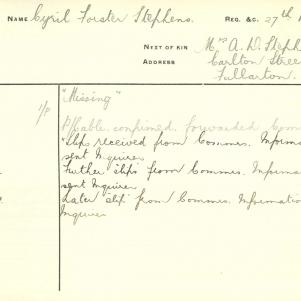 NAME Cyril Forster Stephens. REG. &c. 27th
NEXT OF KIN Mrs A. D. Steph
ADDRESS Carlton Stree
Fullarton.
"Missing"
1/P P/Cable confirmed forwarded Com
"Slips received from Commrs. Informa
sent Inquirer
Further slips from Commrs. Informa
sent Inquirer
Later slip from Commrs. Information
Inquirer